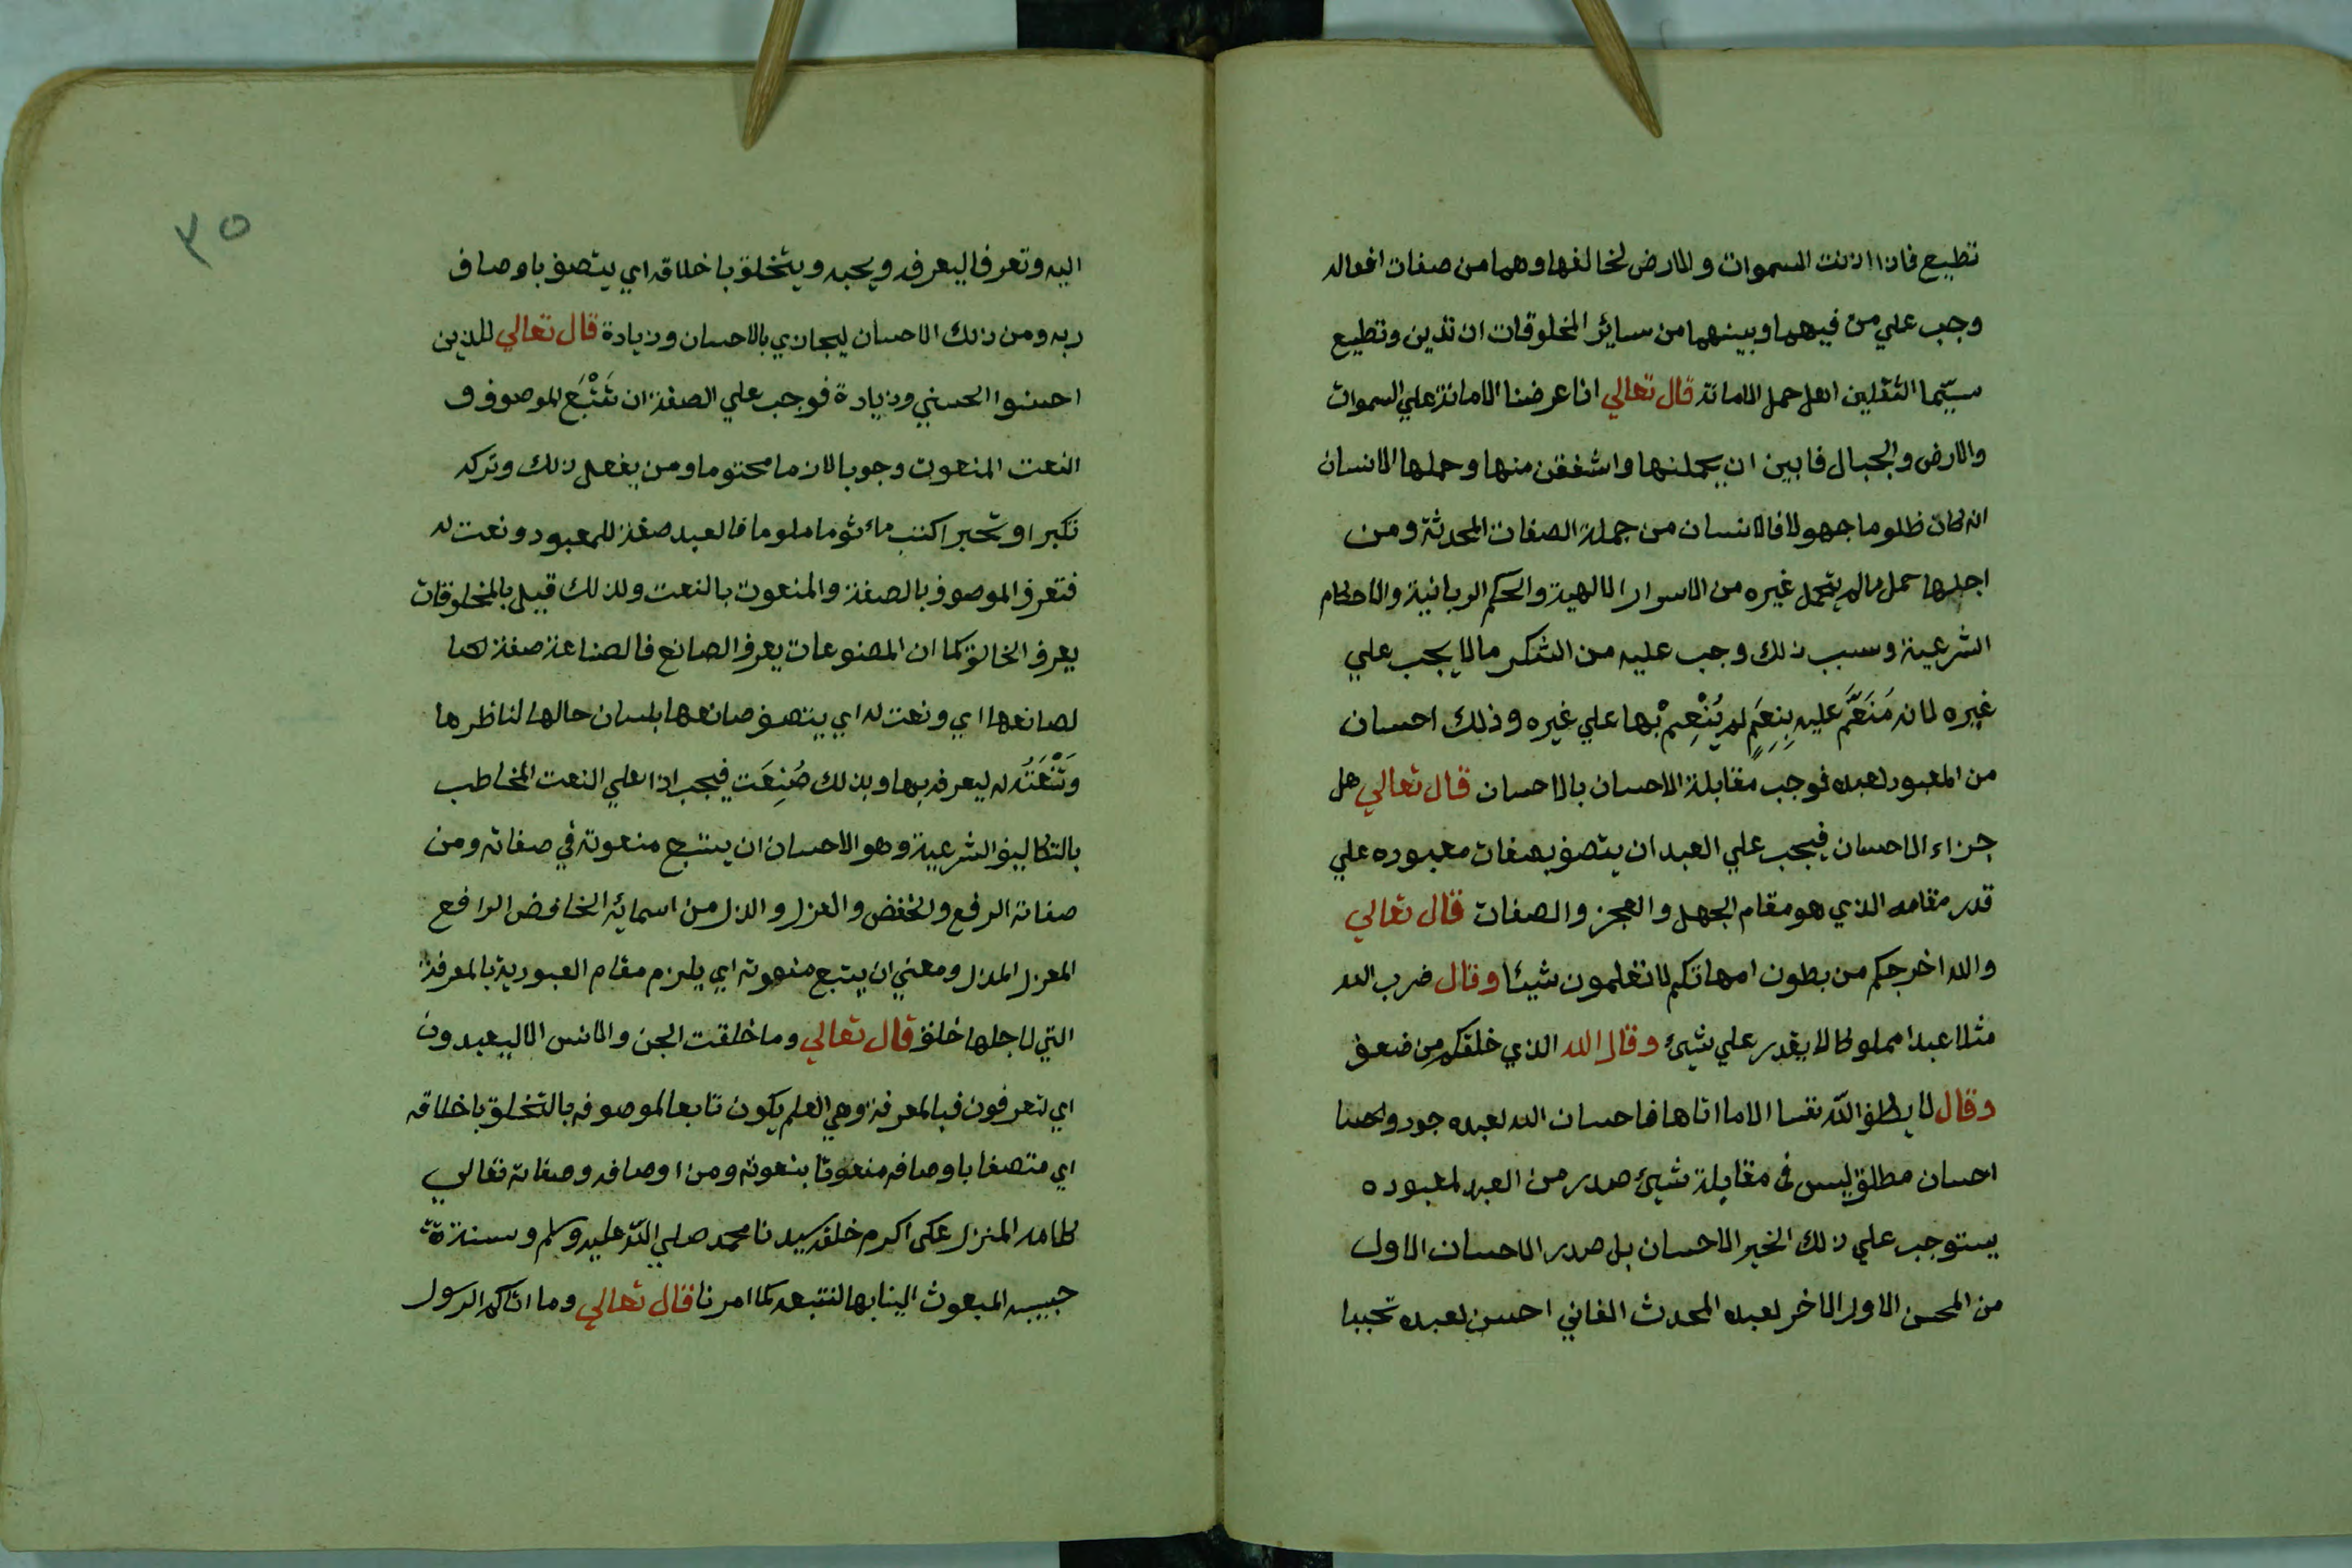 تطيع فاذا اذنت السموات والارض لخالقها وهما من صفات افعاله
وجب علي من فيهما وبينهما من سائر المخلوقات ان تذين وتطيع
سيّما الثقلين اهل حمل الامانة قال تعالي انا عرضنا الامانة علي السموات
والارض والجبال فابين ان يحملنها واشفقن منها وحملها الانسان
انه كان ظلوما جهولا فالانسان من جملة الصفات المحدثة ومن
اجلها حمل مالم يتحمل غيره من الاسرار الالهية والحكم الربانية والاحكام
الشرعية وسبب ذلك وجب عليه من الشكر مالا يجب علي
غيره لانه مَنَعَّم عليه بِنِعَمٍ لم يُنْعِمْ بها علي غيره وذلك احسان
من المعبود لعبده فوجب مقابلة الاحسان بالاحسان قال تعالي هل
جزاء الاحسان فيجب علي العبد ان يتصف بصفات معبوده علي
قدر مقامه الذي هو مقام الجهل والعجز والصفات قال تعالي
والله اخرجكم من بطون امهاتكم لا تعلمون شيئا وقال ضرب الله
مثلا عبدا مملوكا لا يقدر علي شيئ وقال الله الذي خلقكم من ضعف
وقال لا يكلف اللّه نفسا الا ما اتاها فاحسان الله لعبده جود واحسا
احسان مطلق ليس في مقابلة شيئ صدر من العبد لمعبوده
يستوجب علي ذلك الخير الاحسان بل صدر الاحسان الاول
من المحسن الاول الاخر لعبده المحدث الفاني احسن لعبده تحببا
٣٥
اليه وتعرفا ليعرفه ويحبه ويتخلق باخلاقه اي يتصف باوصاف
ربه ومن ذلك الاحسان ليجازي بالاحسان وزيادة قال تعالي للذين
احسنوا الحسني وزيادة فوجب علي الصفة ان تَتْبَع الموصوف و
النعت المنعوت وجوبا لازما محتوما ومن يفعل ذلك وتركه
تكبرا وتجبرا كتب مأثوما ملوما فالعبد صفة للمعبود ونعت له
فتعرف الموصوف بالصفة والمنعوت بالنعت ولذلك قيل بالمخلوقات
يعرف الخالق كما ان المصنوعات يعرف الصانع فالصناعة صفة لها
لصانعها اي ونعت له اي يتصف صانعها بلسان حالها لناظرها
وَتَنْعَتُه له ليعرفه بها وبذلك صُنِعَت فيجب اذا علي النعت المخاطب
بالتكاليف الشرعية وهو الاحسان ان يتبع منعوته في صفاته ومن
صفاته الرفع والخفض والعزل والذل من اسمائه الخافض الرافع
المعز المذل ومعني ان يتبع منعوته اي يلزم مقام العبودية بالمعرفة
التي لاجلها خلق قال تعالي وما خلقت الجن والانس الا ليعبدون
اي لتعرفون فبالمعرفة وهي العلم يكون تابعا لموصوفه بالتخلق باخلاقه
اي متصفا باوصافه منعوتا بنعوته ومن اوصافه وصفاته تعالي
كلامه المنزل علي اكرم خلقه سيدنا محمد صلي اللّه عليه وسلم وسنة
حبيبه المبعوث الينا بها لنتبعه كما امرنا قال تعالي وما اتاكم الرسول